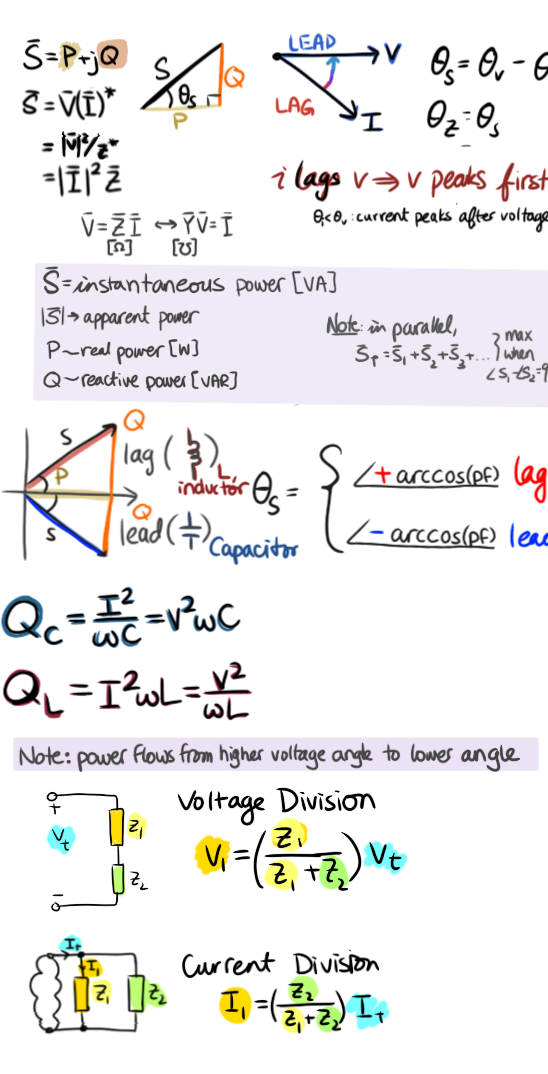 S̄ = P + jQ
S̄ = V̄(Ī)*
= |V̄|²/z*
= |Ī|² Z̄
S
θs
Q
P
LEAD
V
LAG
I
θs = θv - θ
θz = θs
i lags v ⇒ v peaks first
θi<θv : current peaks after voltage
V̄ = Z̄ Ī ↔ ȲV̄ = Ī
[Ω] [℧]
S̄ = instantaneous power [VA]
|S̄| → apparent power
P ~ real power [W]
Q ~ reactive power [VAR]
Note: in parallel,
S̄p = S̄1 + S̄2 + S̄3 + ... } max
when
∠S1-∠S2=9
Q
S
P
lag ( ) L
inductor
Q
S
lead ( )
Capacitor
θs = {
∠+ arccos(pf) lag
∠- arccos(pf) lead
Qc = I²/ωC = V²ωC
QL = I²ωL = V²/ωL
Note: power flows from higher voltage angle to lower angle
+
Vt
-
Z1
Z2
Voltage Division
V1 = (Z1/(Z1 + Z2)) Vt
It
I1
Z1
Z2
Current Division
I1 = (Z2/(Z1 + Z2)) It